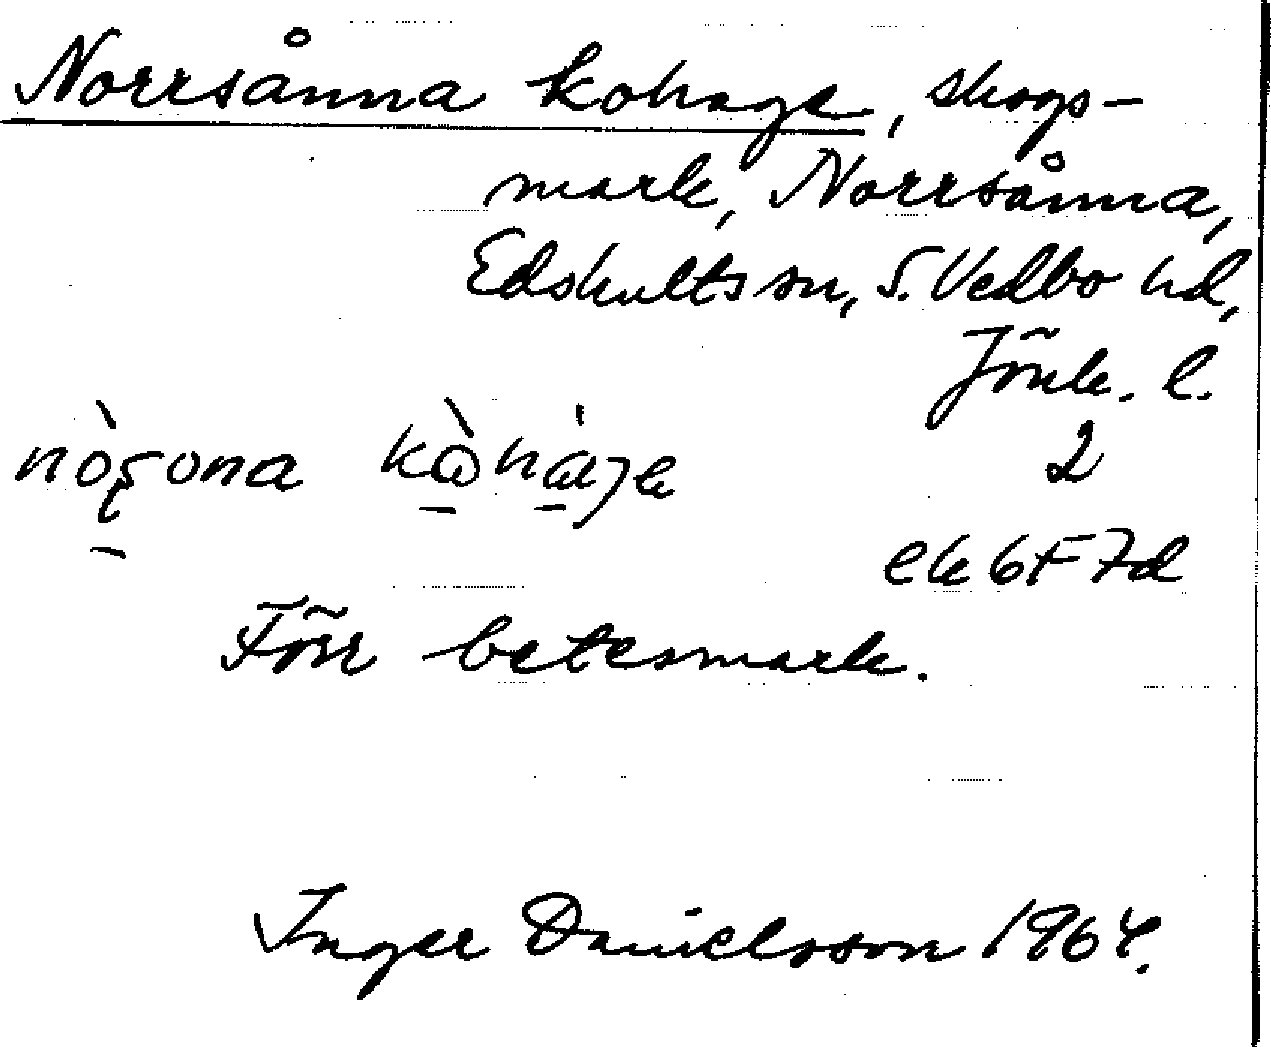 Norrsånna kohage, skogs-
mark, Norrsånna,
Edshults sn, S. Vedbo hd,
Jönk. l.
2
ek 6F 7d
Förr betesmark.
Inger Danielsson 1964.